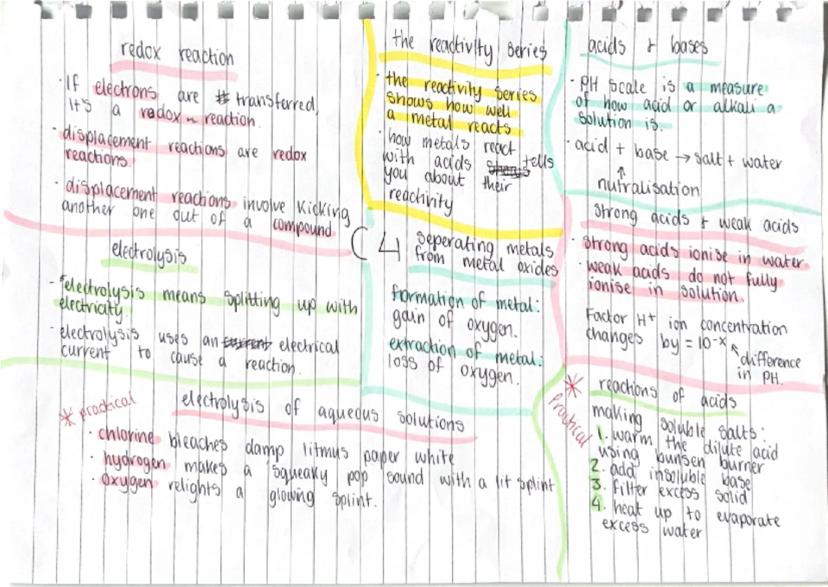 redox reaction
· If electrons are transferred,
It's a redox reaction.
· displacement reactions are redox
reactions.
· displacement reactions involve kicking
another one out of a compound.
the reactivity series
· the reactivity series
shows how well
a metal reacts
· how metals react
with acids tells
you about their
reactivity
acids & bases
· PH scale is a measure
of how acid or alkali a
solution is.
· acid + base → salt + water
↑
nutralisation
strong acids & weak acids
· strong acids ionise in water
· weak acids do not fully
ionise in solution.
Factor H⁺ ion concentration
changes by = 10⁻ˣ
difference
in PH.
C4
electrolysis
· electrolysis means splitting up with
electricity.
· electrolysis uses an electrical
current to cause a reaction.
seperating metals
from metal oxides
formation of metal:
gain of oxygen.
extraction of metal:
loss of oxygen.
* practical
electrolysis of aqueous solutions
· chlorine bleaches damp litmus paper white
· hydrogen makes a squeaky pop sound with a lit splint
· oxygen relights a glowing splint.
* practical
reactions of acids
making soluble salts:
1. warm the dilute acid
using bunsen burner
2. add insoluble base
3. filter excess solid
4. heat up to evaporate
excess water